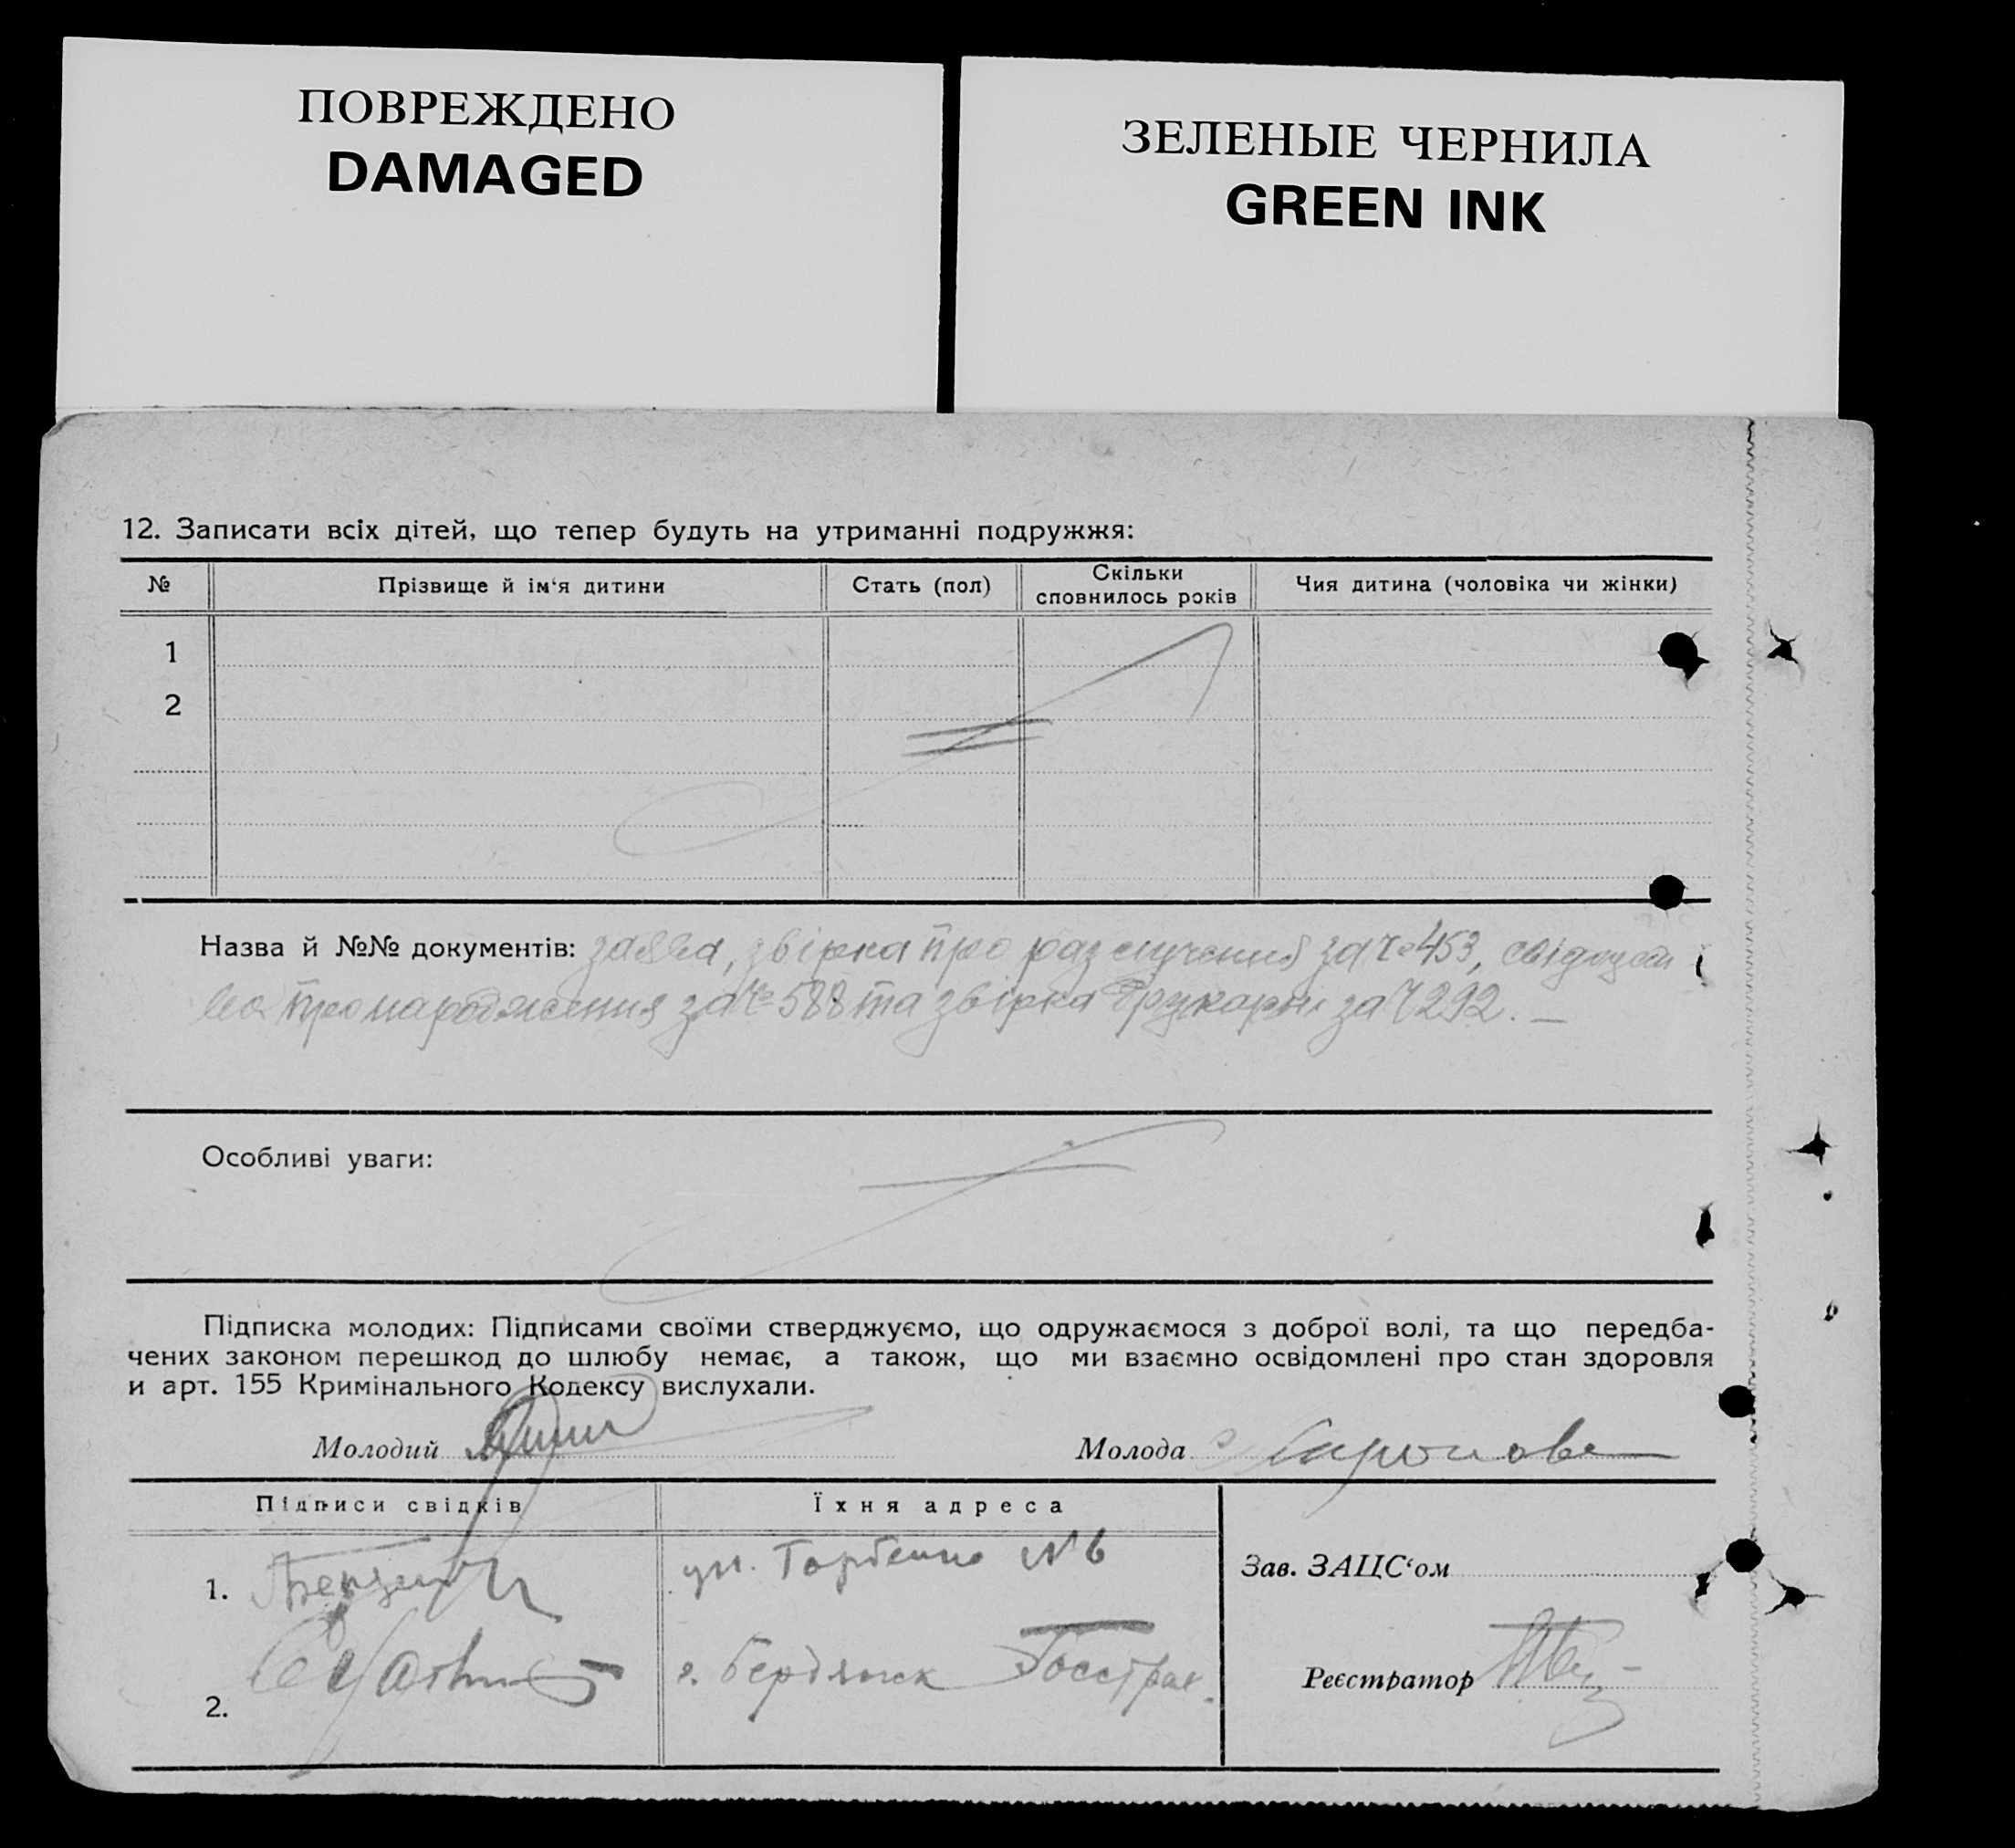 ПОВРЕЖДЕНО
DAMAGED
ЗЕЛЕНЫЕ ЧЕРНИЛА
GREEN INK
12. Записати всіх дітей, що тепер будуть на утриманні подружжя:
№ Прізвище й ім‘я дитини Стать (пол) Скільки сповнилось років Чия дитина (чоловіка чи жінки)
1
2
Назва й №№ документів: заява, звірка про разлучення за № 453, свідоцт
ва про народження за № 588 та звірка Друкарні за Ч 292. —
Особливі уваги:
Підписка молодих: Підписами своїми стверджуємо, що одружаємося з доброї волі, та що передба-
чених законом перешкод до шлюбу немає, а також, що ми взаємно освідомлені про стан здоровля
и арт. 155 Кримінального Кодексу вислухали.
Молодий Молода
Підписи свідків Їхня адреса
1. ул. Горбенко № 6
Зав. ЗАЦС‘ом
2. г. Бердянск Госстрах.
Реєстратор